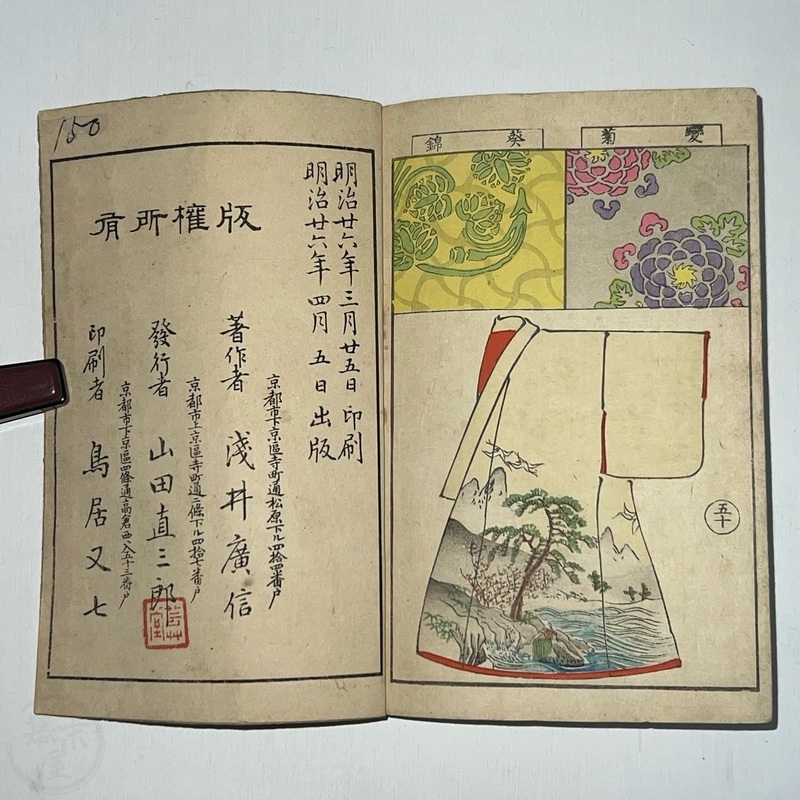 變菊
葵錦
五十
明治廿六年三月廿五日印刷
明治廿六年四月五日出版
版權所有
京都市下京區寺町通松原下ル四拾四番戶
著作者 淺井廣信
京都市上京區寺町通二條下ル四拾七番戶
發行者 山田直三郎
芸艸堂
京都市下京區四條通高倉西入五十三番戶
印刷者 鳥居又七
150